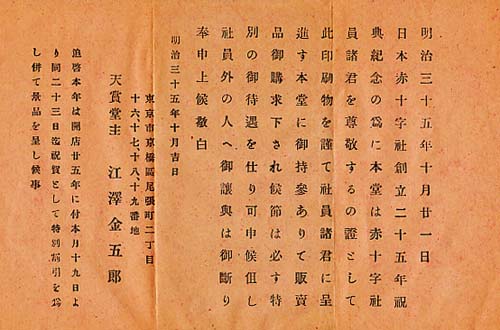 明治三十五年十月廿一日
日本赤十字社創立二十五年祝
典紀念の爲に本堂は赤十字社
員諸君を尊敬するの證として
此印刷物を謹て社員諸君に呈
進す本堂に御持參ありて販賣
品御購求下され候節は必す特
別の御待遇を仕り可申候但し
社員外の人へ御讓與は御斷り
奉申上候敬白
明治三十五年十月吉日
東京市京橋區尾張町二丁目
十六十七十八十九番地
天賞堂主 江澤金五郎
追啓本年は開店廿五年に付本月十九日よ
り同二十三日迄祝賀として特別割引を爲
し併て景品を呈し候事